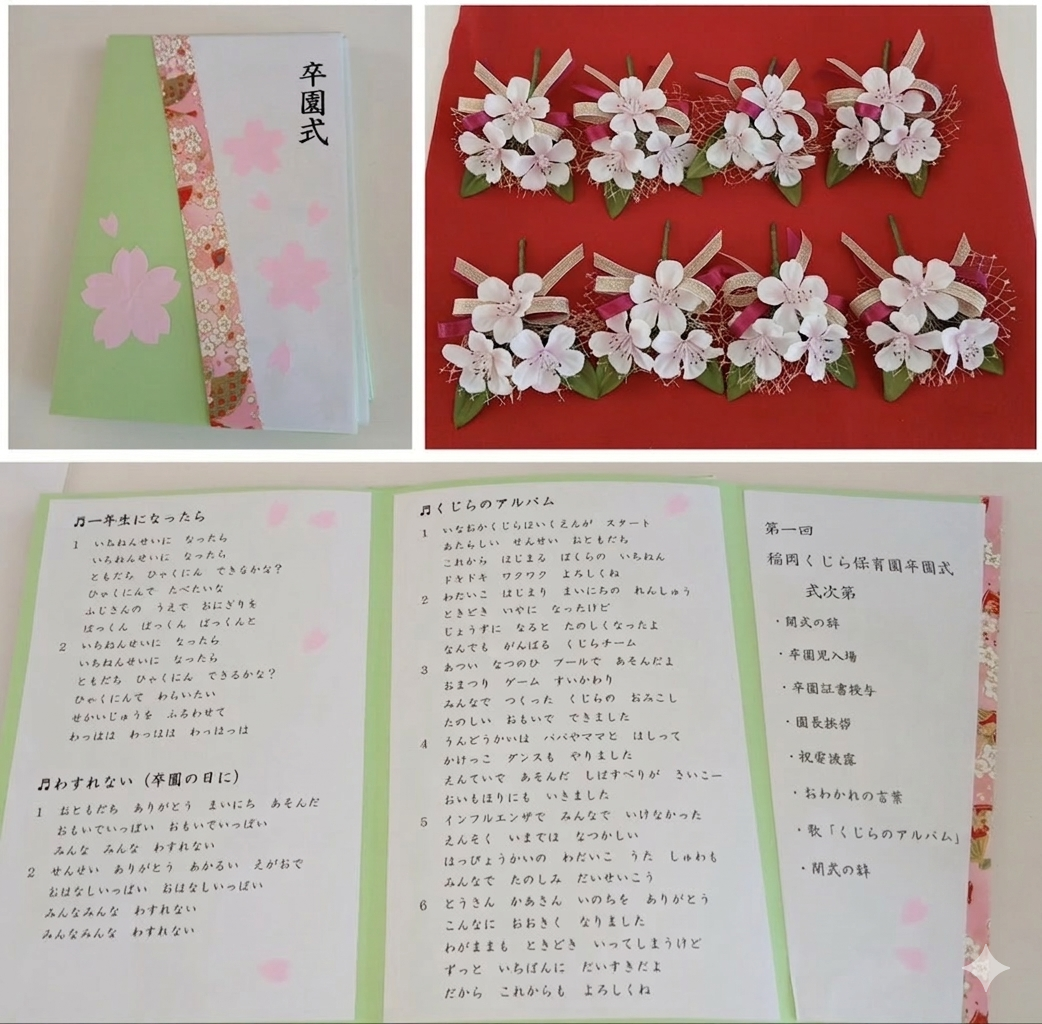 卒園式
♬一年生になったら
1 いちねんせいに なったら
いちねんせいに なったら
ともだち ひゃくにん できなかな？
ひゃくにんで たべたいな
ふじさんの うえで おにぎりを
ぱっくん ぱっくん ぱっくんと
2 いちねんせいに なったら
いちねんせいに なったら
ともだち ひゃくにん できるかな？
ひゃくにんで わらいたい
せかいじゅうを ふるわせて
わっはは わっはは わっはっは
♬わすれない（卒園の日に）
1 おともだち ありがとう まいにち あそんだ
おもいでいっぱい おもいでいっぱい
みんな みんな わすれない
2 せんせい ありがとう あかるい えがおで
おはなしいっぱい おはなしいっぱい
みんなみんな わすれない
みんなみんな わすれない
♬くじらのアルバム
1 いなおかくじらほいくえんが スタート
あたらしい せんせい おともだち
これから はじまる ぼくらの いちねん
ドキドキ ワクワク よろしくね
2 わだいこ はじまり まいにちの れんしゅう
ときどき いやに なったけど
じょうずに なると たのしくなったよ
なんでも がんばる くじらチーム
3 あつい なつのひ プールで あそんだよ
おまつり ゲーム すいかわり
みんなで つくった くじらの おみこし
たのしい おもいで できました
4 うんどうかいは パパやママと はしって
かけっこ ダンスも やりました
えんていで あそんだ しばすべりが さいこー
おいもほりにも いきました
5 インフルエンザで みんなで いけなかった
えんそく いまでは なつかしい
はっぴょうかいの わだいこ うた しゅわも
みんなで たのしみ だいせいこう
6 とうさん かあさん いのちを ありがとう
こんなに おおきく なりました
わがままも ときどき いってしまうけど
ずっと いちばんに だいすきだよ
だから これからも よろしくね
第一回
稲岡くじら保育園卒園式
式次第
・開式の辞
・卒園児入場
・卒園証書授与
・園長挨拶
・祝電披露
・おわかれの言葉
・歌「くじらのアルバム」
・閉式の辞